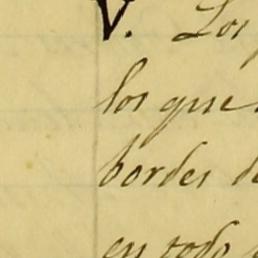 V. Los
los que
bordes de
en todo